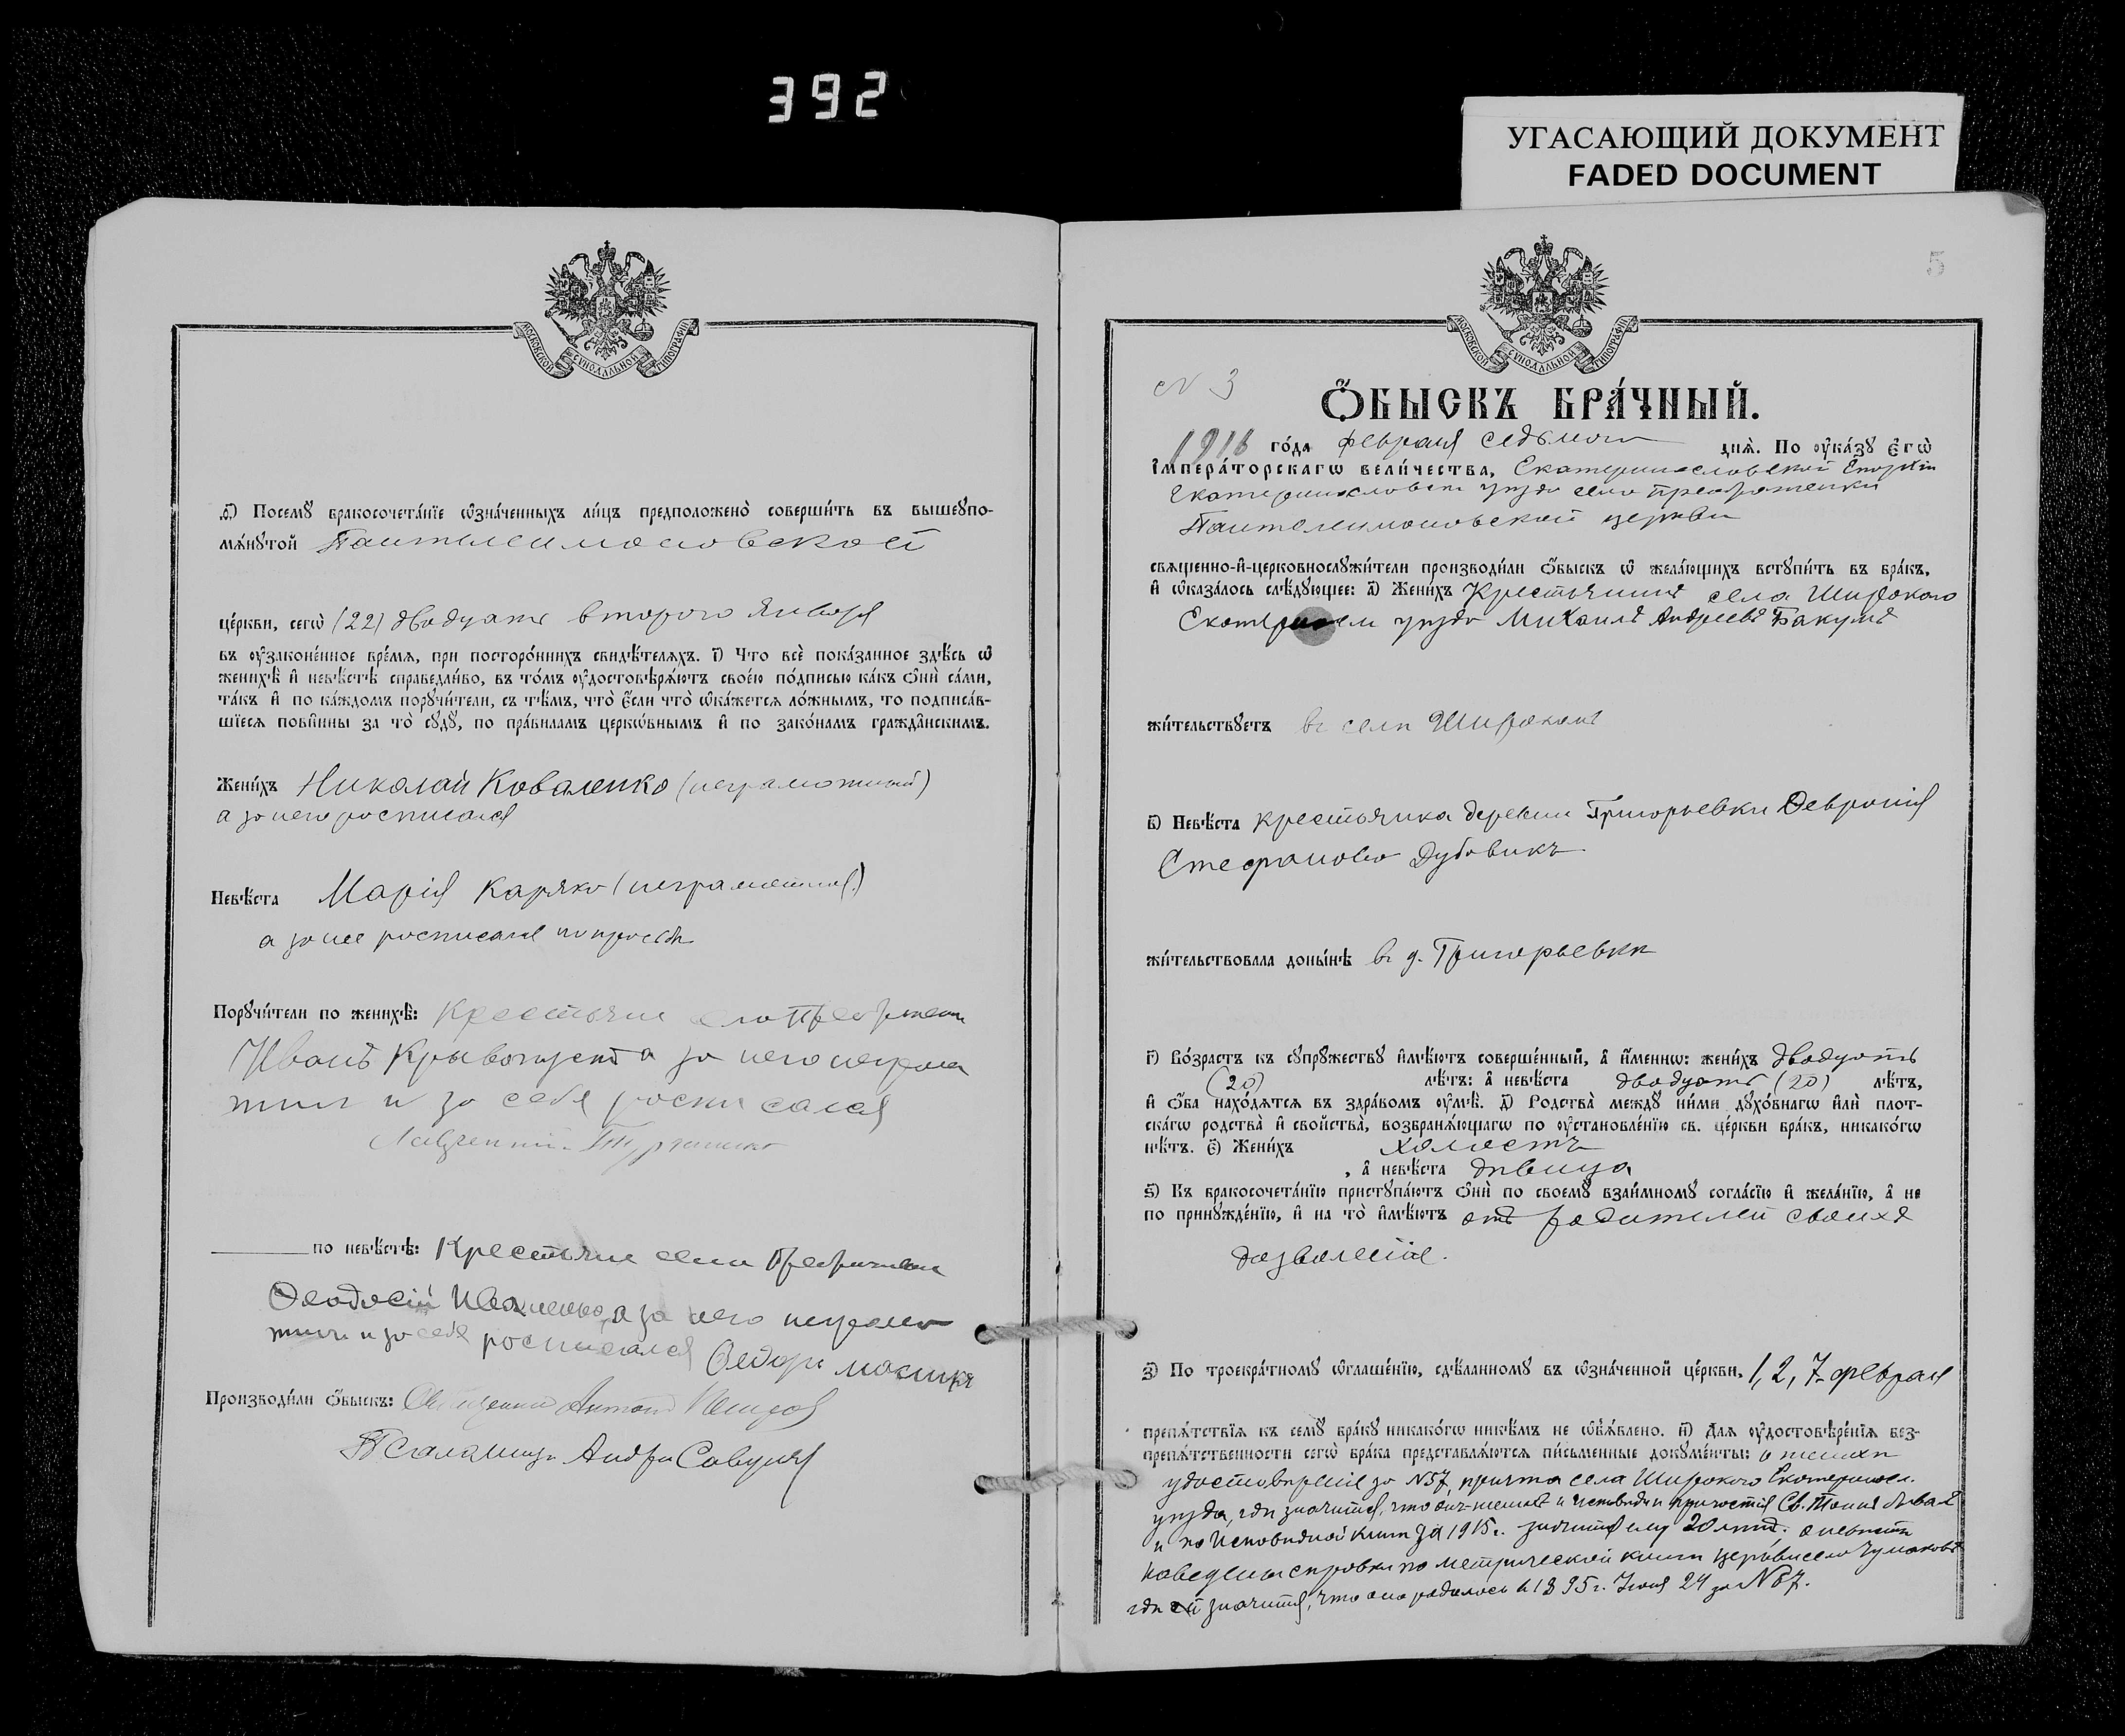 392
УГАСАЮЩИЙ ДОКУМЕНТ
FADED DOCUMENT
МОСКОВСКОЙ СѴНОДАЛЬНОЙ ТИПОГРАФІИ
д҃) Посемꙋ бракосочета́нїе ѡ҆зна́ченныхъ ли́цъ предположено̀ соверши́ть въ вышеꙋпо-
мѧ́нꙋтой Пантелеимоновской
це́ркви, сегѡ̀ (22) двадцать второго Января
въ ᲂу҆законе́нное вре́мѧ, при посторо́ннихъ свидѣ́телѧхъ. і҃) Что всѐ пока́занное здѣ́сь ѡ҆
женихѣ̀ и҆ невѣ́стѣ справедли́во, въ то́мъ ᲂу҆достовѣрѧ́ютъ свое́ю по́дписью ка́къ ѻ҆нѝ са́ми,
та́къ и҆ по ка́ждомъ порꙋчи́тели, съ тѣ́мъ, что̀ є҆́сли что̀ ѡ҆ка́жетсѧ ло́жнымъ, то подписа́в-
шїесѧ пови́нны за то̀ сꙋдꙋ̀, по пра́виламъ церко́внымъ и҆ по зако́намъ гражда́нскимъ.
Жени́хъ Николай Коваленко (неграмотный)
а за него росписался
Невѣ́ста Марія Каряко (неграмотная)
а за нее росписался
Порꙋчи́тели по женихѣ̀: Крестьяне
Иванъ а за него неграмо
тнаго и за себя росписался
по невѣ́стѣ: Крестьяне села
Ѳеодосій Иваненко, а за него неграмо
тнаго и за себя росписался Ѳедоръ
Производи́ли ѻ҆́быскъ: Священникъ Антоній
Псаломщикъ Андрей
5
МОСКОВСКОЙ СѴНОДАЛЬНОЙ ТИПОГРАФІИ
N 3
Ѻ҆́БЫСКЪ БРА́ЧНЫЙ.
1916 го́да февраля седьмого днѧ̀. По ᲂу҆ка́зꙋ Є҆гѡ̀
І҆мпера́торскагѡ вели́чества, Екатеринославской Епархіи
Екатеринославск уѣзда села Преображенки
Пантелеимоновской церкви
свѧщенно-и҆-церковнослꙋжи́тели производи́ли ѻ҆́быскъ ѡ҆ жела́ющихъ встꙋпи́ть въ бра́къ,
и҆ ѡ҆каза́лось слѣ́дꙋющее: а҃) Жени́хъ Крестьянинъ села Широкого
уѣзда Михаилъ Андреевъ Бакумъ
жи́тельствꙋетъ въ селѣ Широкомъ
в҃) Невѣ́ста крестьянка деревни Григорьевки Ѳевронія
Стефанова Дубовикъ
жи́тельствовала доны́нѣ в д. Григорьевкѣ
г҃) Во́зрастъ къ сꙋпрꙋ́жествꙋ и҆мѣ́ютъ соверше́нный, а҆ и҆́меннѡ: жени́хъ двадцать
(20) лѣ́тъ: а҆ невѣ́ста двадцать (20) лѣ́тъ,
и҆ ѻ҆́ба нахо́дѧтсѧ въ здра́вомъ ᲂу҆мѣ̀. д҃) Родства̀ междꙋ ни́ми дꙋхо́внагѡ и҆лѝ плот-
ска́гѡ родства̀ и҆ сво́йства̀, возбранѧ́ющагѡ по ᲂу҆становле́нїю св. це́ркви бра́къ, никако́гѡ
нѣ́тъ. є҃) Жени́хъ холостъ
, а҆ невѣ́ста дѣвица
ѕ҃) Къ бракосочета́нїю пристꙋпа́ютъ ѻ҆нѝ по своемꙋ̀ взаи́мномꙋ согла́сїю и҆ жела́нїю, а҆ не
по принꙋжде́нїю, и҆ на то̀ и҆мѣ́ютъ отъ родителей своихъ
дозволеніе.
з҃) По троекра́тномꙋ ѡ҆глаше́нїю, сдѣ́ланномꙋ въ ѡ҆зна́ченной це́ркви, 1, 2, 7 февраля
препѧ́тствїѧ къ семꙋ̀ бра́кꙋ никако́гѡ никѣ́мъ не ѡ҆б̾ѧ́влено. и҃) Длѧ ᲂу҆достовѣре́нїѧ без-
препѧ́тственности сегѡ̀ бра́ка представлѧ́ютсѧ пи́сьменные докꙋме́нты: о женихѣ
удостовѣреніе за №57, причта села Широкого Екатериносл.
уѣзда, гдѣ значится, что онъ
и по Исповѣдной книгѣ за 1915 г. значится ему 20 лѣтъ. о невѣстѣ
наведены справки по метрической книгѣ церкви села Чумаковъ
гдѣ значится, что она родилась в 1895 г. Іюня 24 за №87.